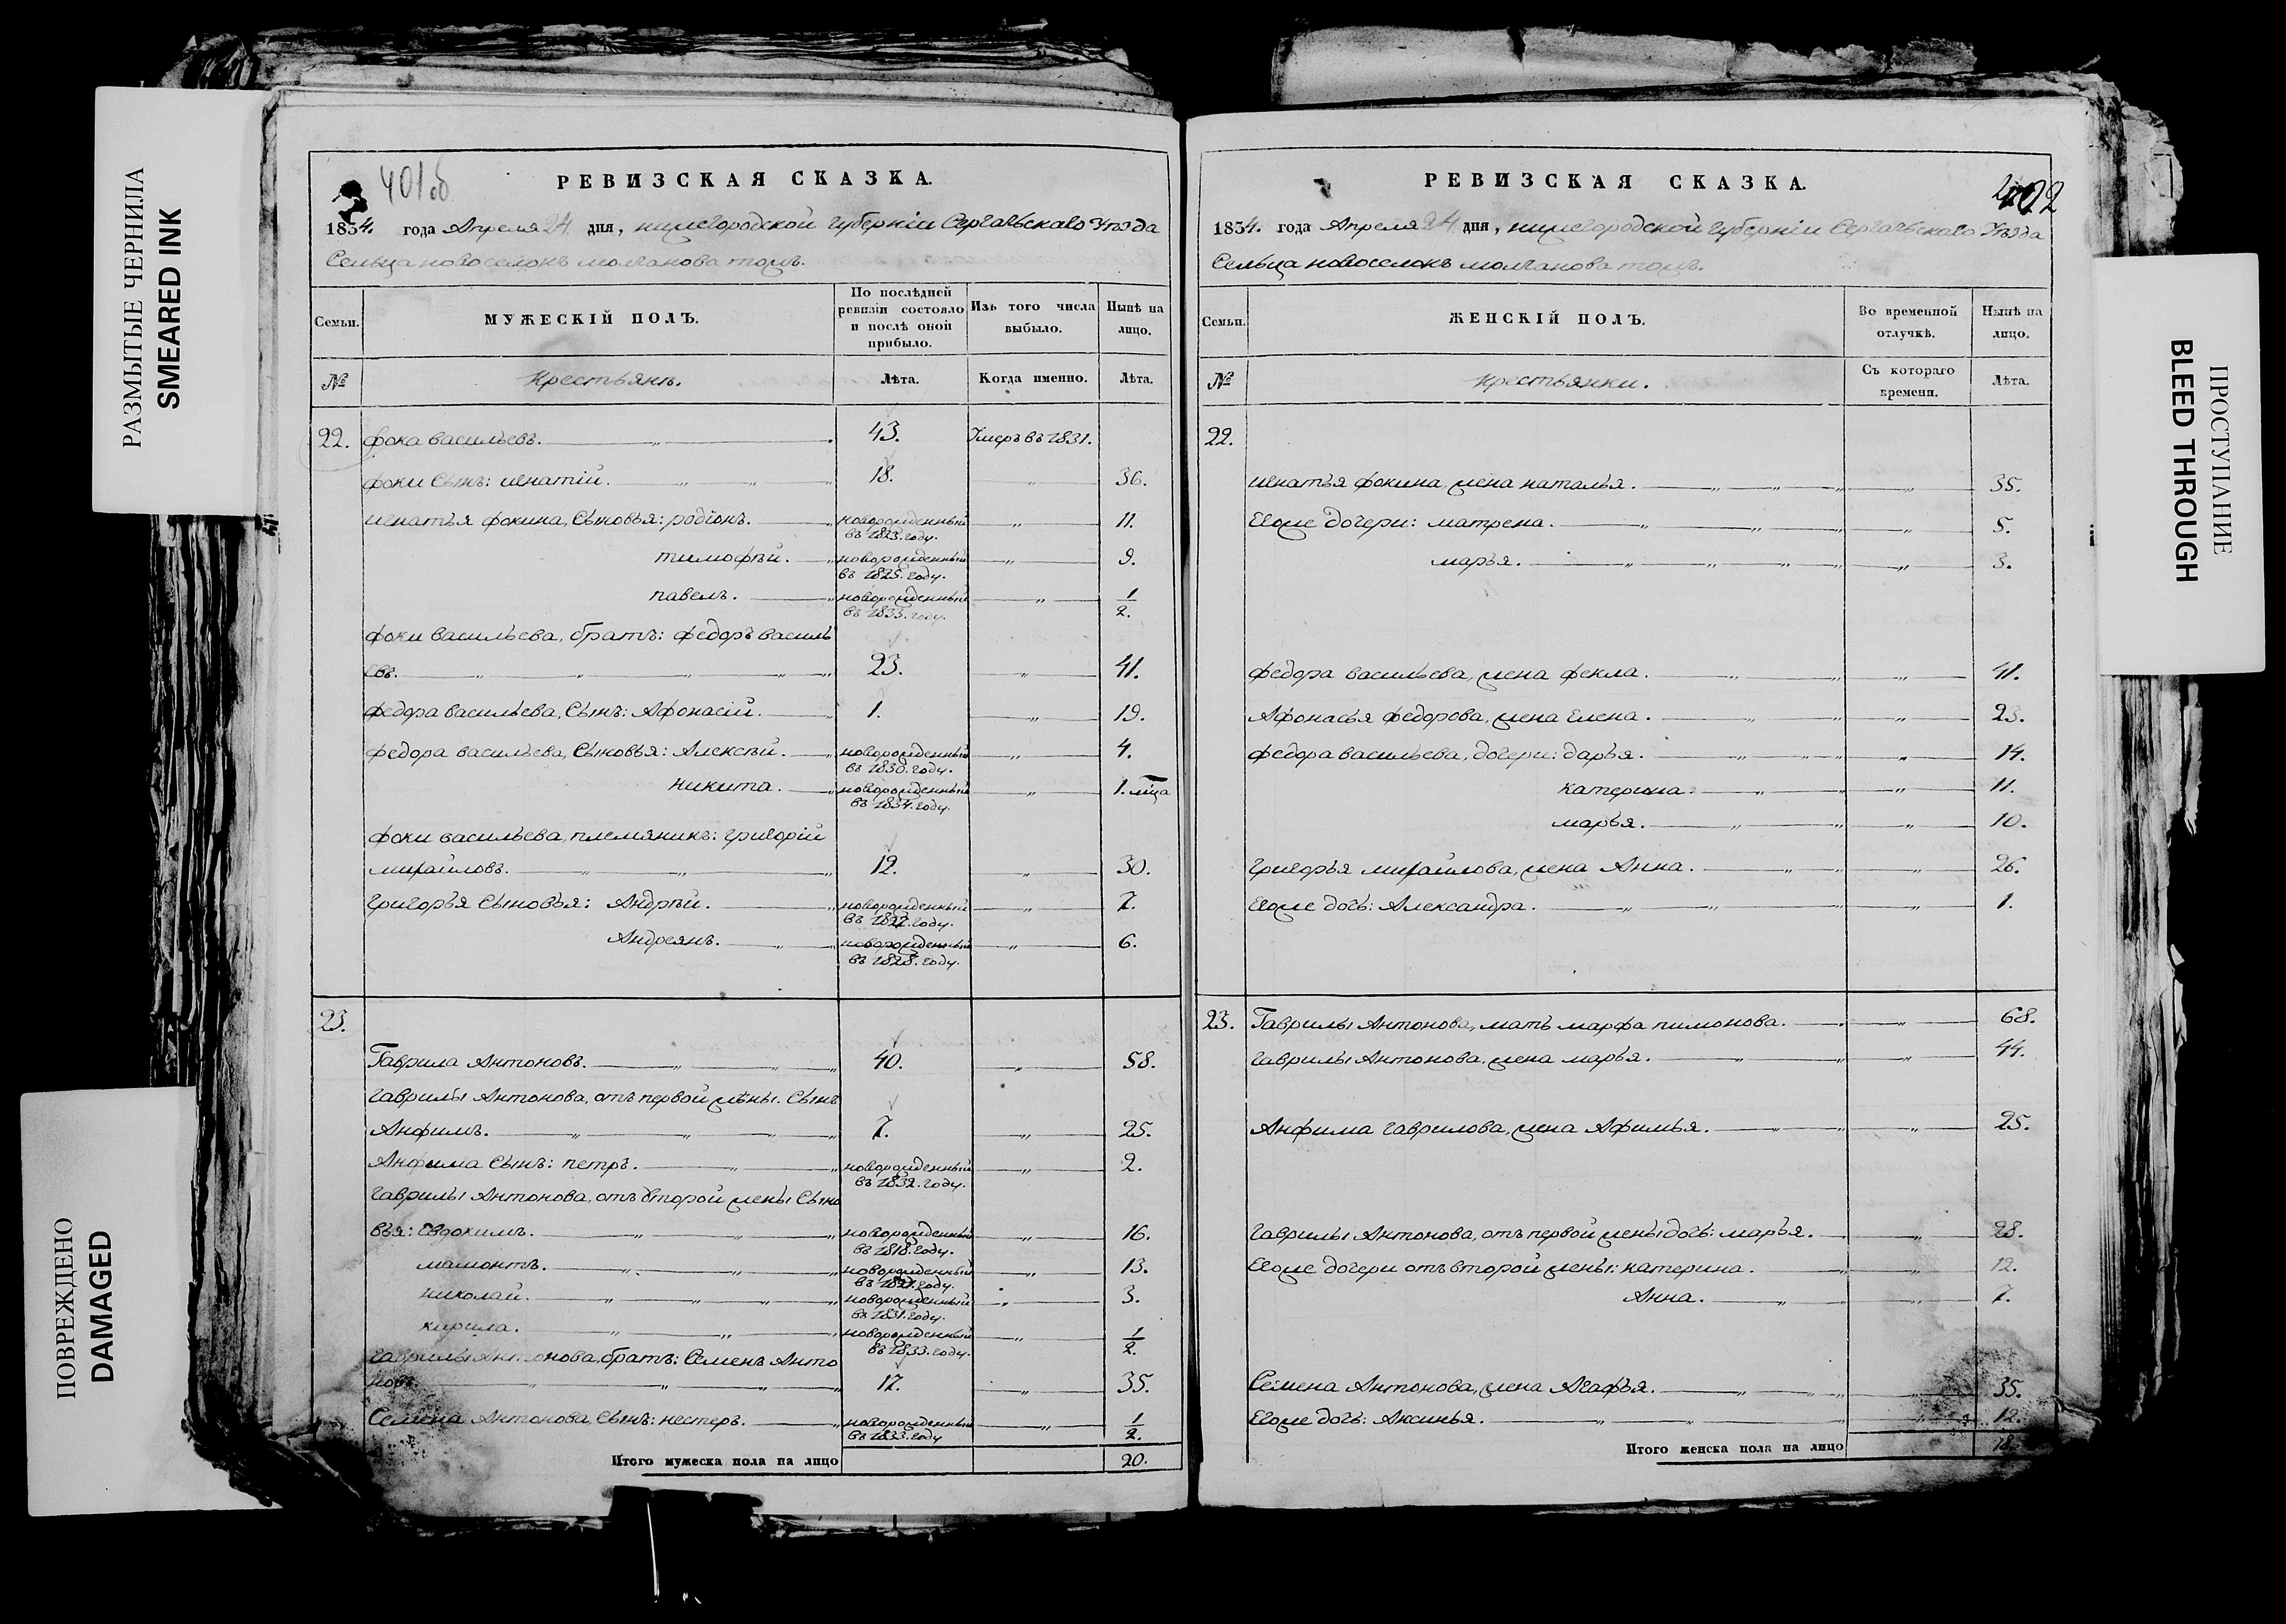 РАЗМЫТЫЕ ЧЕРНИЛА
SMEARED INK
ПОВРЕЖДЕНО
DAMAGED
401 об
РЕВИЗСКАЯ СКАЗКА.
1834. года Апреля 24 дня, нижегородской губерніи Сергачьскаго Уѣзда
Сельца новоселокъ молчанова тожъ.
Семьи.
МУЖЕСКІЙ ПОЛЪ.
По послѣдней ревизіи состояло и послѣ оной прибыло.
Изъ того числа выбыло.
Нынѣ на лицо.
№
Крестьянъ.
Лѣта.
Когда именно.
Лѣта.
22. фока васильевъ. 43. Умеръ въ 1831.
фоки Сынъ: игнатій. 18. 36.
игнатья фокина, Сыновья: родіонъ. новорожденный въ 1823. году. 11.
тимофѣй. новорожденный въ 1825. году. 9.
павелъ. новорожденный въ 1833. году. 1/2.
фоки васильева, братъ: федоръ василь
евъ. 23. 41.
федора васильева, Сынъ: Афонасій. 1. 19.
федора васильева, Сыновья: Алексѣй. новорожденный въ 1830. году. 4.
никита. новорожденный въ 1834. году. 1. мца
фоки васильева, племяникъ: григорій
михайловъ. 12. 30.
григорья Сыновья: Андрѣй. новорожденный въ 1827. году. 7.
Андреянъ. новорожденный въ 1828. году. 6.
23.
Гаврила Антоновъ. 40. 58.
гаврилы Антонова, отъ первой жены. Сынъ
Анфимъ. 7. 25.
Анфима Сынъ: петръ. новорожденный въ 1832. году. 2.
гаврилы Антонова, отъ второй жены Сыно
вья: Евдокимъ. новорожденный въ 1818. году. 16.
мамонтъ. новорожденный въ 1821. году. 13.
николай. новорожденный въ 1831. году. 3.
кирила. новорожденный въ 1833. году. 1/2.
гаврилы Антонова, братъ: Семенъ Анто
новъ. 17. 35.
Семена Антонова, Сынъ: нестеръ. новорожденный въ 1833. году 1/2.
Итого мужеска пола на лицо 20.
402
РЕВИЗСКАЯ СКАЗКА.
1834. года Апреля 24 дня, нижегородской губерніи Сергачьскаго Уѣзда
Сельца новоселокъ молчанова тожъ.
Семьи.
ЖЕНСКІЙ ПОЛЪ.
Во временной отлучкѣ.
Нынѣ на лицо.
№
крестьянки.
Съ котораго времени.
Лѣта.
22.
игнатья фокина, жена наталья. 35.
Егоже дочери: матрена. 5.
марья. 3.
федора васильева, жена фекла. 41.
Афонасья федорова, жена Елена. 23.
федора васильева, дочери: дарья. 14.
катерина. 11.
марья. 10.
григорья михайлова, жена Анна. 26.
Егоже дочь: Александра. 1.
23. Гаврилы Антонова, мать марфа пимонова. 68.
гаврилы Антонова, жена марья. 44.
Анфима гаврилова, жена Афимья. 25.
гаврилы Антонова, отъ первой жены дочь: марья. 28.
Егоже дочери отъ второй жены: катерина. 12.
Анна. 7.
Семена Антонова, жена Агафья. 35.
Егоже дочь: Аксинья. 12.
Итого женска пола на лицо 18.
ПРОСТУПАНИЕ
BLEED THROUGH